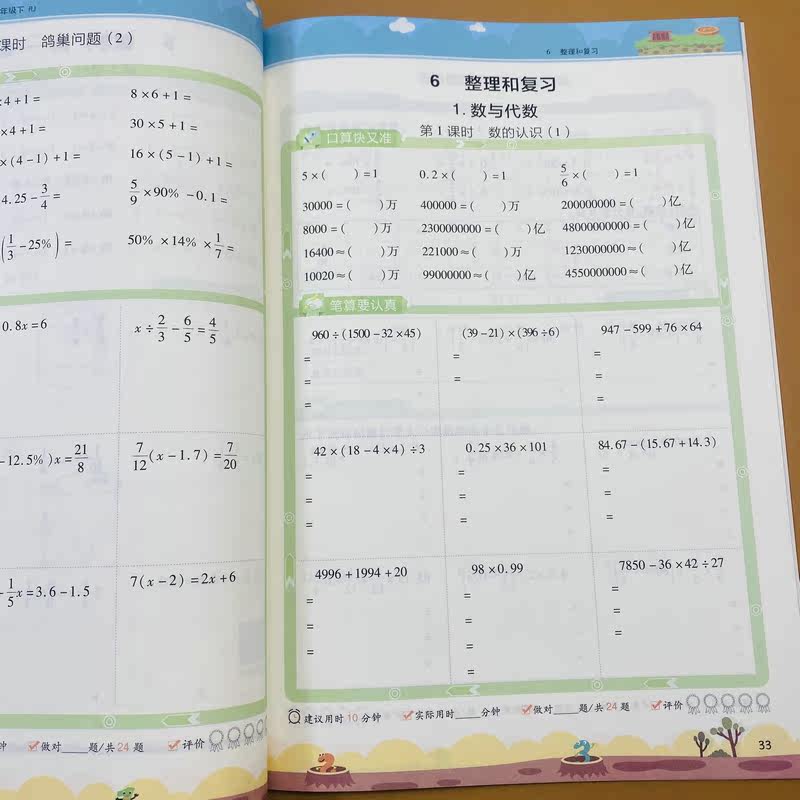 年级下 RJ
课时 鸽巢问题(2)
×4+1= 8×6+1=
×4+1= 30×5+1=
×(4-1)+1= 16×(5-1)+1=
4.25-3/4= 5/9×90%-0.1=
(1/3-25%)= 50%×14%×1/7=
0.8x=6 x÷2/3-6/5=4/5
-12.5%)x=21/8 7/12(x-1.7)=7/20
1/5x=3.6-1.5 7(x-2)=2x+6
钟 做对____题/共24题 评价
6 整理和复习
6 整理和复习
1.数与代数
第1课时 数的认识(1)
口算快又准
5×( )=1 0.2×( )=1 5/6×( )=1
30000=( )万 400000=( )万 200000000=( )亿
8000=( )万 2300000000=( )亿 48000000000=( )亿
16400≈( )万 221000≈( )万 1230000000≈( )亿
10020≈( )万 99000000≈( )亿 4550000000≈( )亿
笔算要认真
960÷(1500-32×45) (39-21)×(396÷6) 947-599+76×64
= = =
= = =
= =
42×(18-4×4)÷3 0.25×36×101 84.67-(15.67+14.3)
= = =
= = =
= = =
4996+1994+20 98×0.99 7850-36×42÷27
= = =
= = =
= = =
=
建议用时10分钟 实际用时____分钟 做对____题/共24题 评价
33